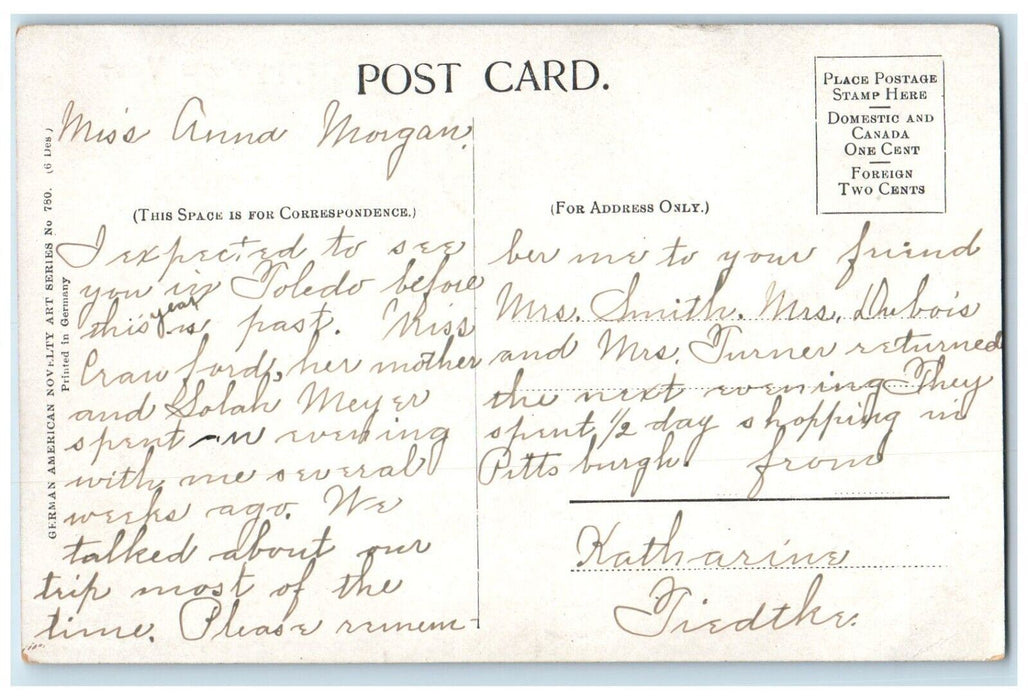 POST CARD.
PLACE POSTAGE
STAMP HERE
DOMESTIC AND
CANADA
ONE CENT
FOREIGN
TWO CENTS
GERMAN AMERICAN NOVELTY ART SERIES No 780. (6 Des)
Printed in Germany
Miss Anna Morgan.
(THIS SPACE IS FOR CORRESPONDENCE.)
I expected to see
you in Toledo before
this year is past. Miss
Crawford, her mother
and Solah Meyer
spent an evening
with me several
weeks ago. We
talked about our
trip most of the
time. Please remem-
(FOR ADDRESS ONLY.)
ber me to your friend
Mrs. Smith. Mrs. Dubois
and Mrs. Turner returned
the next evening They
spent 1/2 day shopping in
Pittsburgh. from
Katharine
Tiedtke.